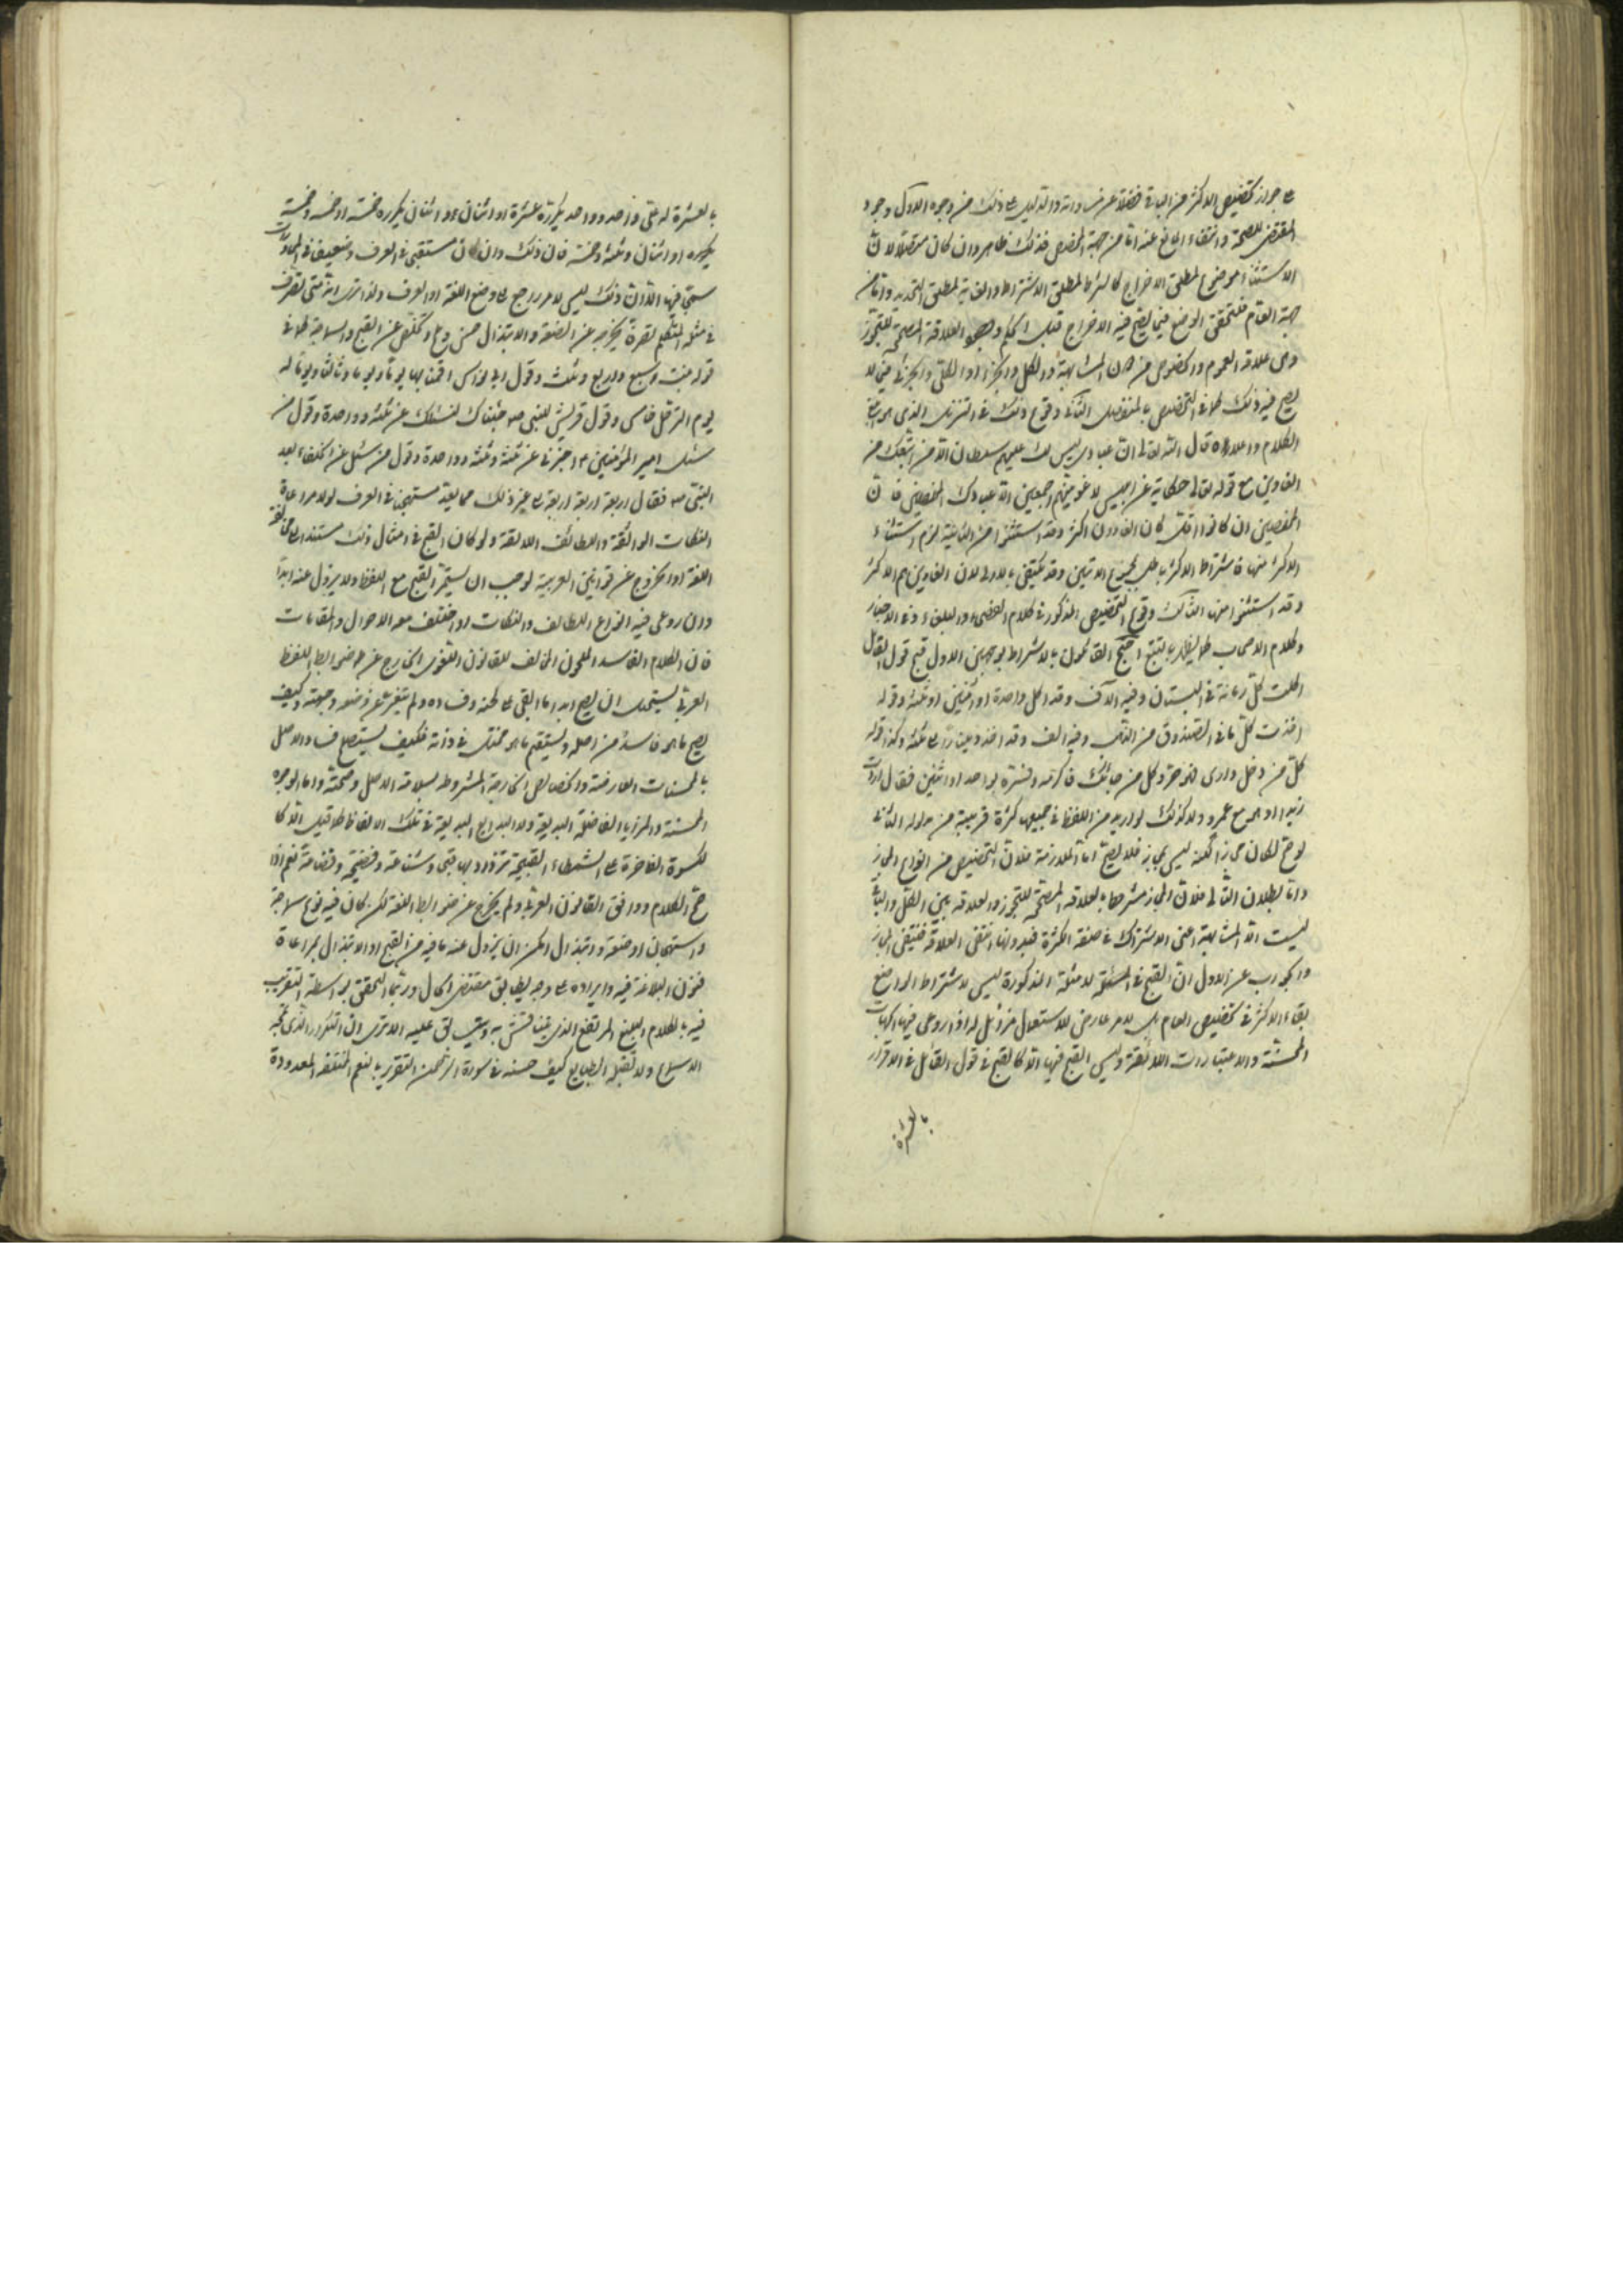 على جواز تخصيص الاكثر من الباقى فضلا عن مساواته والدليل على ذلك من وجوه الاول وجود
المقتضى للصحة وانتفاء المانع عنه اما من جهة المخصص فذلك ظاهر وان كان متصلا لان
الاستثناء موضوع لمطلق الاخراج كالشرط لمطلق الاشتراط والغاية لمطلق التحديد واما من
جهة العام فلتحقق الوضع فيما يصح فيه الاخراج قبل الحكم ووجود العلاقة المصححة للتجوز
وهى علاقة العموم والخصوص من دون المشابهة والكل والجزء او الكلى والجزئى فيما لا
يصح فيه ذلك كما فى التخصيص بالمنفصل الثانى وقوع ذلك فى التنزيل الذى هو
الكلام واعلاه قال الله تعالى ان عبادى ليس لك عليهم سلطان الا من اتبعك من
الغاوين مع قوله تعالى حكاية عن ابليس لاغوينهم اجمعين الا عبادك المخلصين فان
المخلصين ان كانوا اقل كان الغاوون اكثر وقد استثنوا من الثانية لزم استثناء
الاكثر منها فاشتراط الاكثر باطل بمجموع الايتين وقد يكتفى بالاولى لان الغاوين هم الاكثر
وقد استثنوا منها الثالث وقوع التخصيص المذكور فى كلام الفصحاء والبلغاء وفى الاخبار
وكلام الاصحاب كما يظهر بالتتبع احتج القائلون بالاشتراط بوجهين الاول قبح قول القائل
اكلت كل رمانة فى البستان وفيه الاف وقد اكل واحدة او اثنتين او ثلثة وقوله
اخذت كل ما فى الصندوق من الذهب وفيه الف وقد اخذ دينارا الى ثلثة وكذا قوله
كل من دخل دارى فهو حر وكل من جائك فاكرمه وفسره بواحد او اثنين فقال اردت
زيدا او هو مع عمرو ولا كذلك لو اريد من اللفظ فى جميعها كثرة قريبة من مدلوله الثانى
لو صح لكان مجازا لكنه ليس بمجاز فلا يصح اما الملازمة فلان التخصيص من انواع المجاز
واما بطلان التالى فلان المجاز مشروط بالعلاقة المصححة للتجوز والعلاقة بين الكل والباقى
ليست الا المشابهة اعنى الاشتراك فى صفة الكثرة فبدونها انتفى العلاقة فينتفى المجاز
والجواب عن الاول ان القبح فى الامثلة المذكورة ليس لاشتراط الواضع
بقاء الاكثر فى تخصيص العام بل لامر عارض للاستعمال مزيل له اذا روعى فيها الجهات
المحسنة والاعتبارات اللائقة وليس القبح فيها الا كالقبح فى قول القائل فى الاقرار
بالعشرة
بالعشرة له على واحد وواحد يكرره عشرة او اثنان واثنان يكرره خمسة او خمسة وخمسة
يكرره او اثنان وثلثة وخمسة فان ذلك وان كان مستقبحا فى العرف وضعيفا فى المحاورات
سمجا فيها الا ان ذلك ليس لامر راجع الى وضع اللغة او العرف ولذا ترى انه متى تصرف
فى مثله المتكلم تصرفا يخرجه عن الضعة والابتذال حسن وعلا وتخلص عن القبح والسماجة كما فى
قوله بنت سبع واربع وثلث وقول ابى نواس اقمنا بها يوما ويوما وثالثا ويوما له
يوم الترحل خامس وقول قريش للنبى صه جئناك لنسئلك عن ثلثة وواحدة وقول من
سئل امير المؤمنين ع اخبرنى عن ثلثة وثلثة وواحدة وقول من سئل عن الخلفاء بعد
النبى صه فقال اربعة اربعة اربعة الى غير ذلك مما يعد مستهجنا فى العرف لولا مراعاة
النكات الرائقة واللطائف اللائقة ولو كان القبح فى امثال ذلك مستندا الى مخالفة
اللغة او الخروج عن قوانين العربية لوجب ان يستمر القبح مع اللفظ ولا يزول عنه ابدا
وان روعى فيه انواع اللطايف والنكات او اختلف معه الاحوال والمقامات
فان الكلام الفاسد الملحون المخالف للقانون اللغوى الخارج عن ضوابط اللفظ
العربى يستحيل ان يصح ابدا ما بقى على لحنه وفساده ولم يتغير عن وضعه وجهته وكيف
يصح ما هو فاسد من اصله ويستقيم ما هو مختل فى ذاته فكيف يستصلح فساد الاصل
بالمحسنات العارضة والخصايص الخارجة المشروطة بسلامة الاصل وصحته واما الوجوه
المحسنة والمزايا الفاضلة البديعة ولا البدايع البديعة فى تلك الالفاظ كما قيل الا كا
لكسوة الفاخرة على الشمطاء القبيحة تزداد بها قبحا وشناعة وفضيحة وفضاعة نعم اذا
صح الكلام ووافق القانون العربى ولم يخرج عن ضوابط اللغة لكن كان فيه نوع سماجة
واستهجان او ضعة وابتذال امكن ان يزول عنه ما فيه من القبح او الابتذال بمراعاة
فنون البلاغة فيه وايراده على وجه يطابق مقتضى الحال وربما التحقق بواسطة التقريب
فيه بالكلام البليغ المرتفع الذى يتنافس به ويتسابق عليه الا ترى ان التكرار الذى تمجه
الاسماع ولا تقبله الطبايع كيف حسنه فى سورة الرحمن التقرير بالنعم المختلفة المعدودة